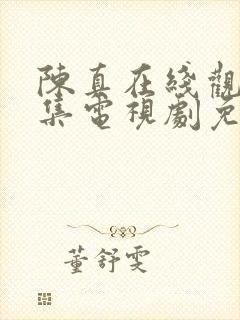 陳真在綫觀
集電視劇免
董舒雯